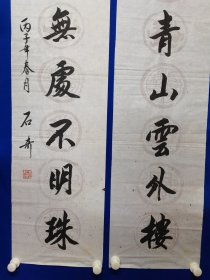 青山雲外樓
無處不明珠
丙子年春月
石奇